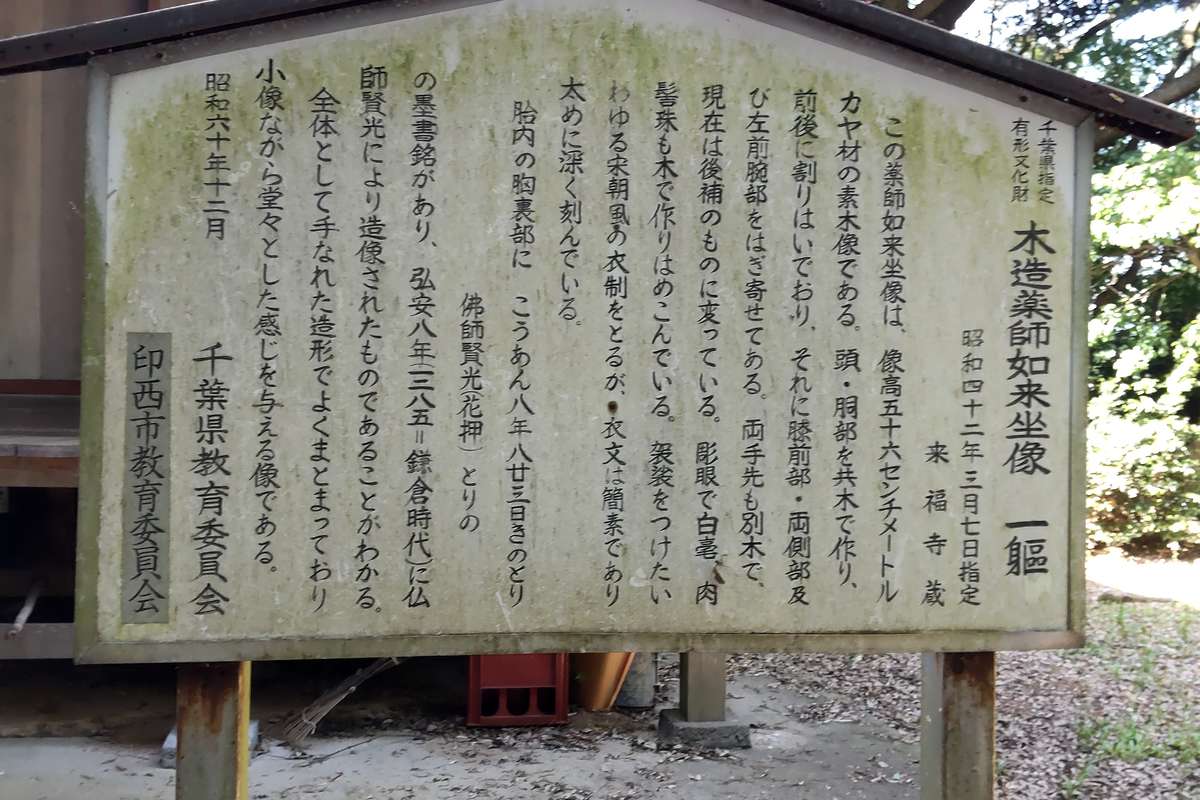 千葉県指定
有形文化財
木造薬師如来坐像 一軀
昭和四十二年三月七日指定
来福寺蔵
この薬師如来坐像は、像高五十六センチメートル
カヤ材の素木像である。頭・胴部を共木で作り、
前後に割りはいでおり、それに膝前部・両側部及
び左前腕部をはぎ寄せてある。両手先も別木で、
現在は後補のものに変っている。彫眼で白毫、肉
髻珠も木で作りはめこんでいる。袈裟をつけたい
わゆる宋朝風の衣制をとるが、衣文は簡素であり
太めに深く刻んでいる。
胎内の胸裏部に こうあん八年八廿三日きのとり
佛師賢光(花押) とりの
の墨書銘があり、弘安八年(一二八五=鎌倉時代)に仏
師賢光により造像されたものであることがわかる。
全体として手なれた造形でよくまとまっており
小像ながら堂々とした感じを与える像である。
昭和六十年十二月
千葉県教育委員会
印西市教育委員会